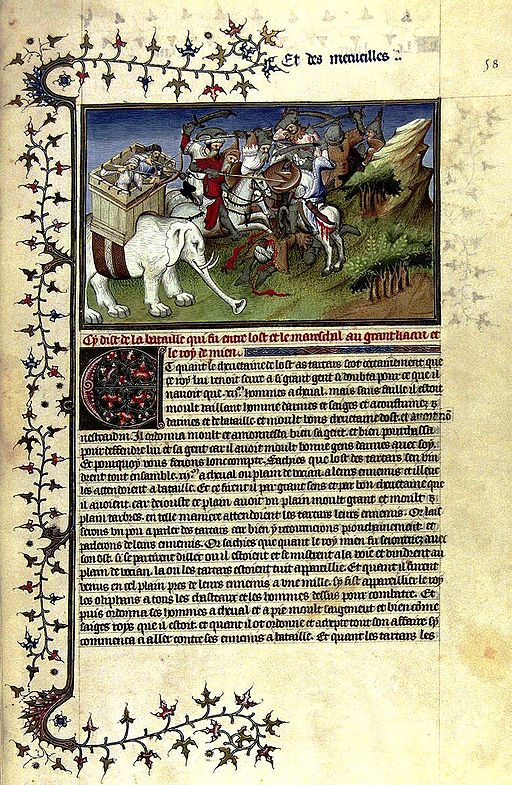 Et des merueilles
58
Cy dist de la bataille qui fu entre lost et le mareschal au grant kaan et
le roy de mien
Et quant le cheuetaine de lost as tartars sceut certainement que
ce roy lui uenoit seure a si grant gent si doubta pour ce que il
nauoit que .xij. hommes a cheual. mais sans faille il estoit
moult uaillant homme darmes et saiges et acoustumez
darmes et de bataille et moult bons cheuetaine dost. et auoit nō
nescradin. Il ordonna moult et amonnesta bien sa gent. et bien pourchassa
pour deffendre lui et sa gent car il auoit moult bonne gens darmes auec soy.
Et pourquoy uous feroions lonc compte. Sachies que lost des tartars sen uin
drent tout ensamble .xij. a cheual ou plain de uocian a leurs ennemis et illeuc
les attendoient a bataille. Et ce firent il par grant sens et par bon cheuetaine que
il auoient. car de iouste ce plain auoit vn plain moult grant et moult
plain darbres. en telle maniere attendoient les tartars leurs ennemis. Or lais
serons vn pou a parler des tartars car bien y retournerons prouchainement. et
parlerons de leurs ennemis. Or sachies que quant le roy mien fu seiournez auec
son ost. si se partirent dillec ou il estoient et se mistrent a la uoie et uindrent au
plain de uocian. la ou les tartars estoient tuit appareillie. Et quant il furent
uenus en cel plain pres de leurs ennemis a vne mille. sy fist appareillier le roy
les olifans a tous les chasteaux et les hommes dessus pour combatre. Et
puis ordonna ses hommes a cheual et a pie moult saigement et bien cōme
saiges roys que il estoit. et quant il ot ordonne et acepte tout son affaire sy
commenca a aller contre ses ennemis a bataille. Et quant les tartars les